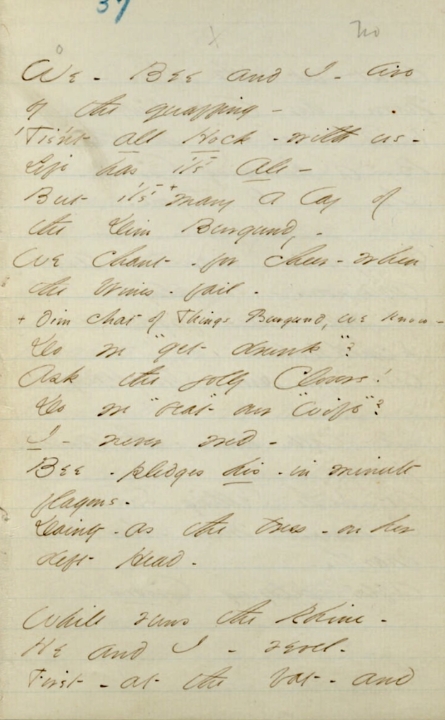 37 x no
We - Bee and I - live
by the quaffing -
'Tisn't all Hock - with us -
Life has its Ale -
But it's + many a lay of
the Dim Burgundy -
We chant - for cheer - when
the Wines - fail -
+ Dim chat of Things Burgundy, we know -
Do we "get drunk"?
Ask the jolly Clovers!
Do we "beat" our "Wife"?
I - never wed -
Bee - pledges his - in minute
flagons -
Dainty - as the tress - on her
deft Head -
While runs the Rhine -
He and I - revel -
First - at the vat - and